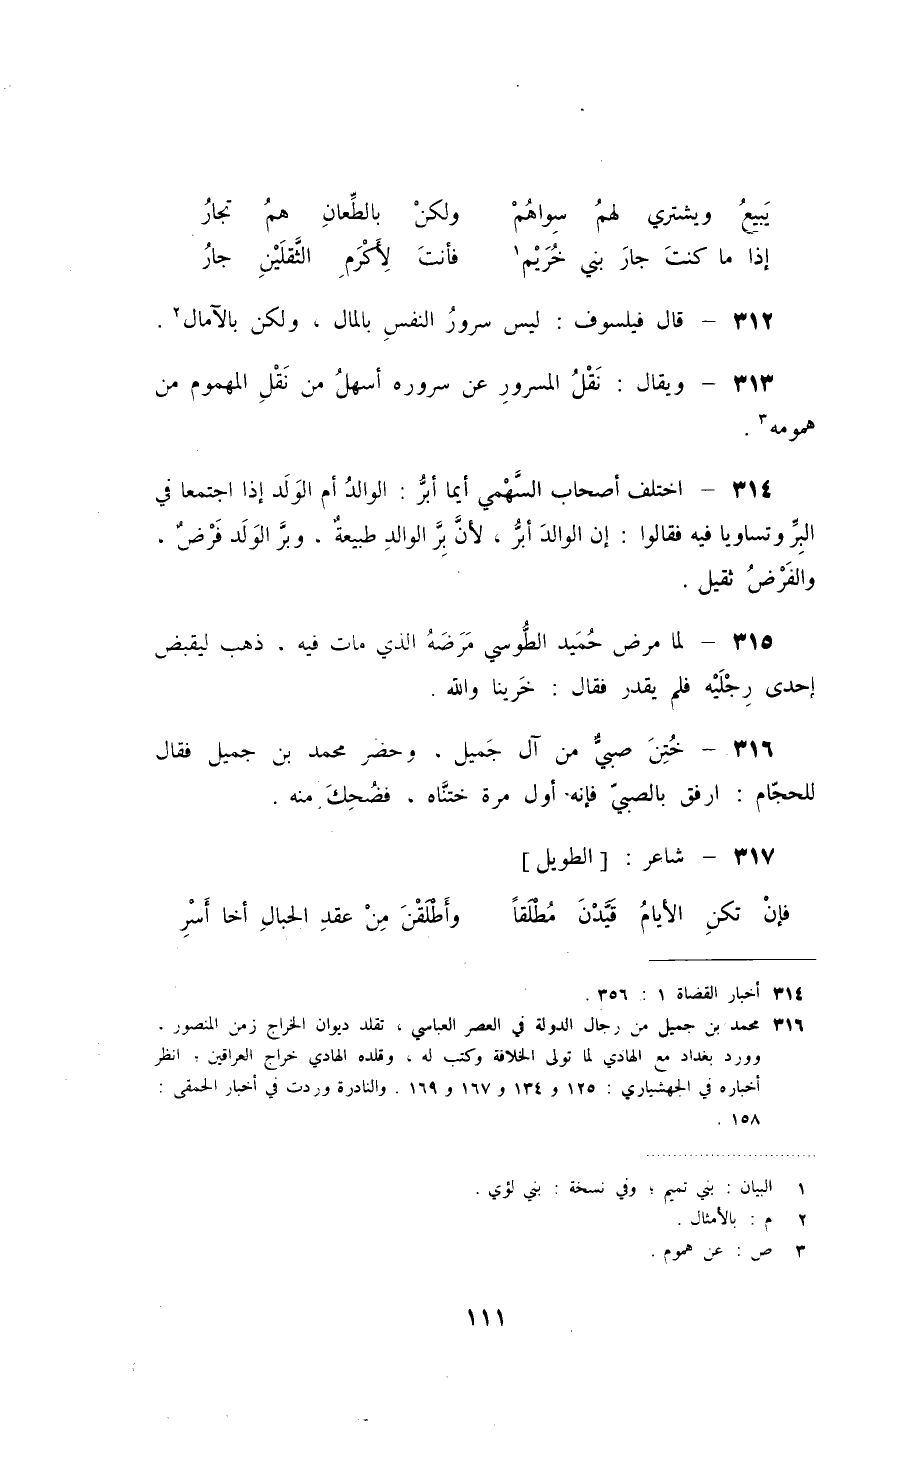 يَبيعُ ويشتري لهمُ سِواهُمْ ولكنْ بالطِّعانِ همُ تجارُ
إذا ما كنتَ جارَ بني خُرَيْم١ فأنتَ لِأَكْرَمِ الثَّقلَيْنِ جارُ
٣١٢ – قال فيلسوف : ليس سرورُ النفسِ بالمال ، ولكن بالآمال٢ .
٣١٣ – ويقال : نَقْلُ المسرورِ عن سروره أسهلُ من نَقْلِ المهموم من
همومه٣ .
٣١٤ – اختلف أصحاب السَّهْمي أيما أبرُّ : الوالدُ أم الوَلَد إذا اجتمعا في
البِرِّ وتساويا فيه فقالوا : إن الوالدَ أبرُّ ، لأنَّ بِرَّ الوالدِ طبيعةٌ . وبرَّ الوَلَد فَرْضٌ .
والفَرْضُ ثقيل .
٣١٥ – لما مرض حُمَيد الطُّوسي مَرَضَهُ الذي مات فيه . ذهب ليقبض
إحدى رِجْلَيْه فلم يقدر فقال : خَرينا والله .
٣١٦ – خُتِنَ صبيٌّ من آل جَميل . وحضر محمد بن جميل فقال
للحجّام : ارفق بالصبيّ فإنه أول مرة ختنَّاه . فضُحِكَ منه .
٣١٧ – شاعر : [ الطويل ]
فإنْ تكنِ الأيامُ قَيَّدْنَ مُطْلَقاً وأَطْلَقْنَ مِنْ عقدِ الحبالِ أخا أَسْرِ
٣١٤ أخبار القضاة ١ : ٣٥٦ .
٣١٦ محمد بن جميل من رجال الدولة في العصر العباسي ، تقلد ديوان الخراج زمن المنصور .
وورد بغداد مع الهادي لما تولى الخلافة وكتب له ، وقلده الهادي خراج العراقين ؛ انظر
أخباره في الجهشياري : ١٢٥ و ١٣٤ و ١٦٧ و ١٦٩ . والنادرة وردت في أخبار الحمقى :
١٥٨ .
١ البيان : بني تميم ؛ وفي نسخة : بني لؤي .
٢ م : بالأمثال .
٣ ص : عن هموم .
١١١